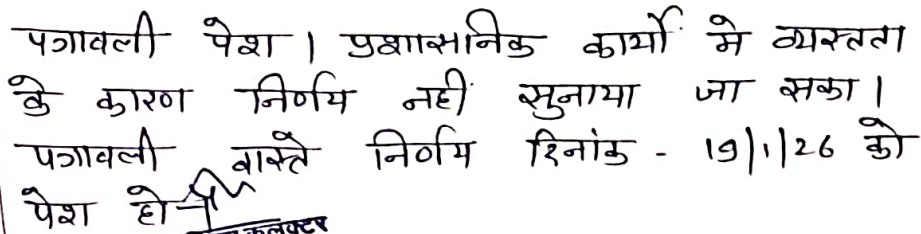 पत्रावली पेश । प्रशासनिक कार्यो मे व्यस्तता
के कारण निर्णय नही सुनाया जा सका ।
पत्रावली वास्ते निर्णय दिनांक - 19/1/26 को
पेश हो
कलक्टर